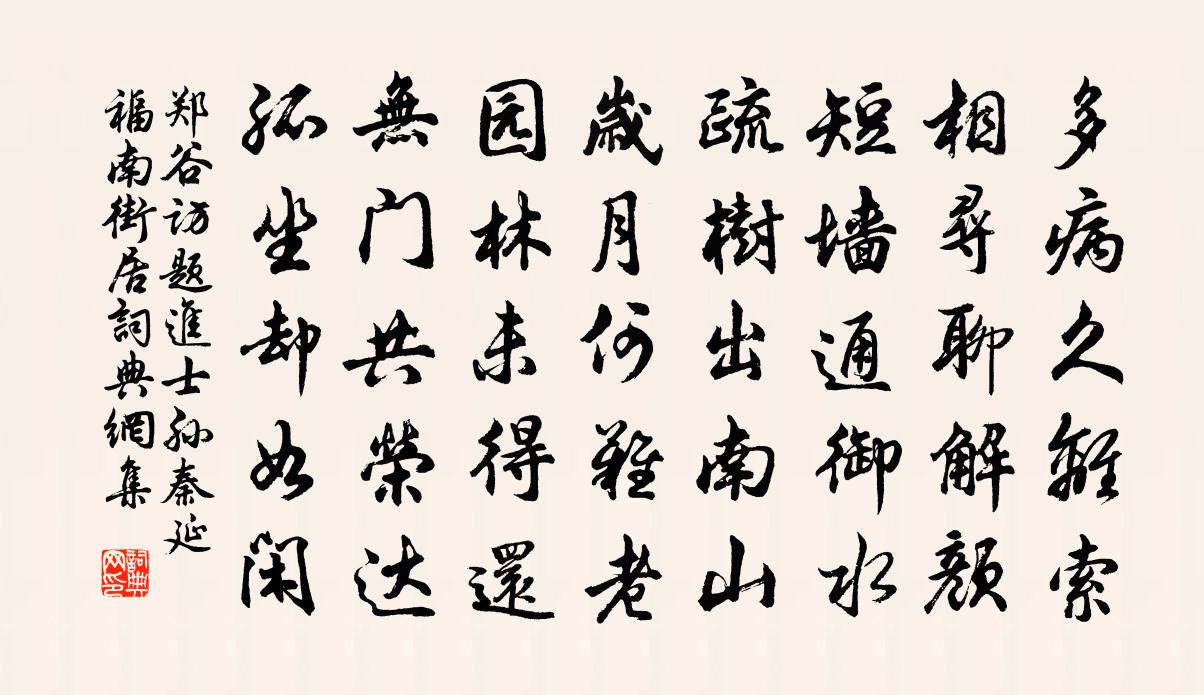 多病久離索
相尋聊解顏
短墙通御水
疏樹出南山
歲月何難老
园林未得還
無门共榮达
孤坐却如閑
郑谷访题進士孙秦延
福南街居詞典網集
詞典网印